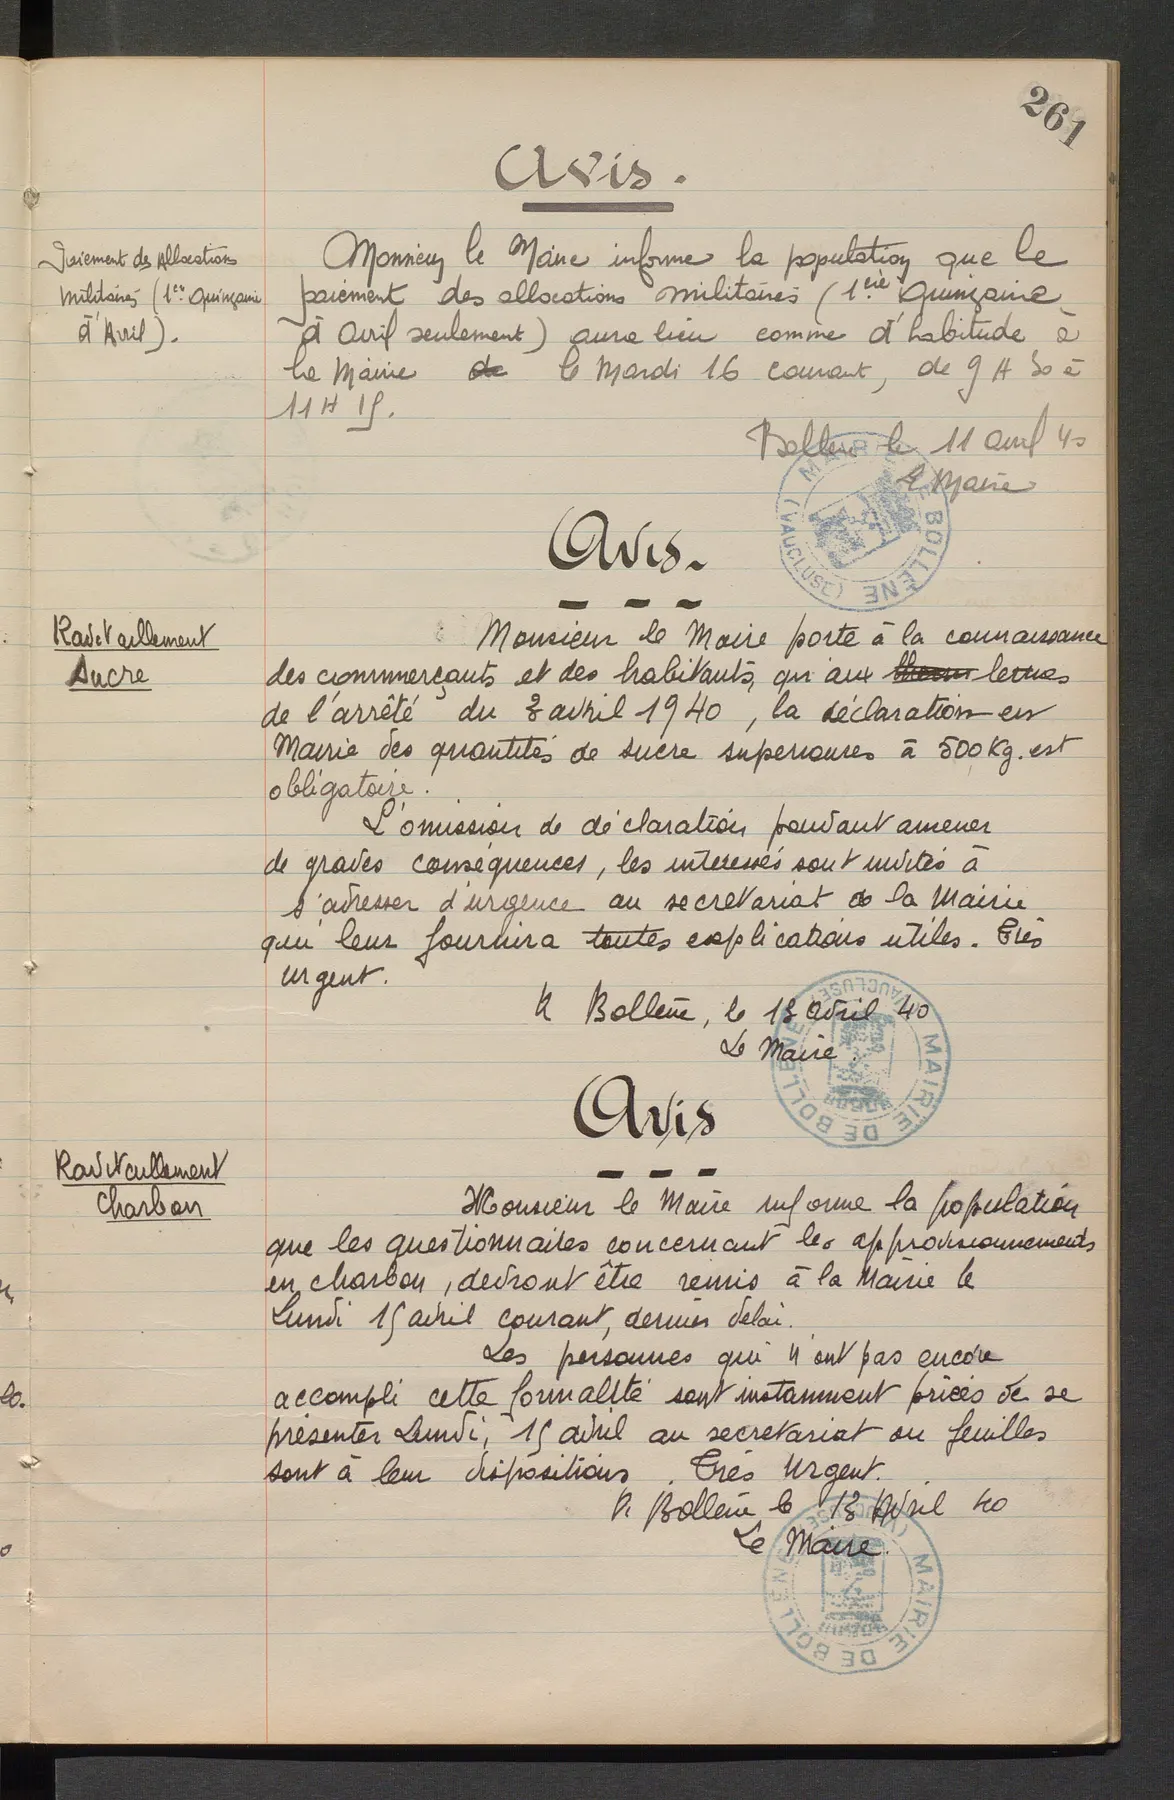 261
Avis.
Paiement des Allocations
Militaires (1ère Quinzaine
d'Avril).
Monsieur le Maire informe la population que le
paiement des allocations militaires (1ère Quinzaine
d'Avril seulement) aura lieu comme d'habitude à
la Mairie de le Mardi 16 courant, de 9 H 30 à
11 H 15.
Bollène le 11 avril 40
Le Maire
MAIRIE DE BOLLÈNE (VAUCLUSE)
Avis.
Ravitaillement
Sucre
Monsieur le Maire porte à la connaissance
des commerçants et des habitants, qu'aux termes
de l'arrêté du 3 avril 1940, la déclaration en
Mairie des quantités de sucre superieures à 500 Kg. est
obligatoire.
L'omission de déclaration pouvant amener
de graves conséquences, les interessés sont invités à
s'adresser d'urgence au secretariat de la Mairie
qui leur fournira toutes explications utiles. Très
urgent.
A Bollène, le 13 avril 40
Le Maire.
MAIRIE DE BOLLENE (VAUCLUSE)
Avis
Ravitaillement
Charbon
Monsieur le Maire informe la population
que les questionnaires concernant les approvisionnements
en charbon, devront être remis à la Mairie le
Lundi 15 avril courant, dernier delai.
Les personnes qui n'ont pas encore
accompli cette formalité sont instamment priées de se
présenter Lundi, 15 avril au secretariat ou feuilles
sont à leur dispositions. Très Urgent.
A Bollène le 13 Avril 40
Le Maire.
MAIRIE DE BOLLENE (VAUCLUSE)